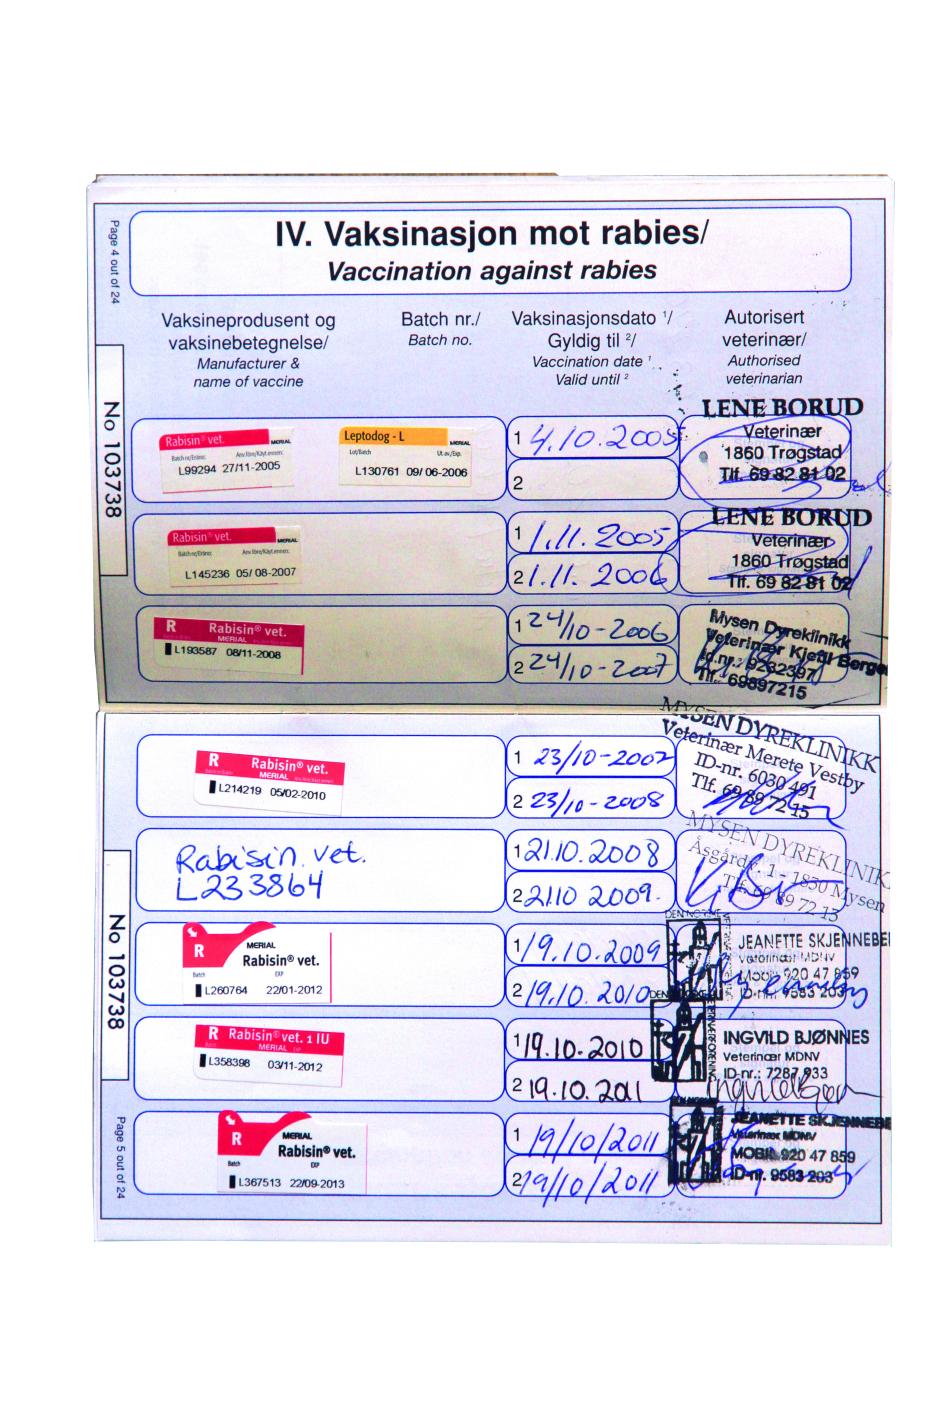 Page 4 out of 24
IV. Vaksinasjon mot rabies/
Vaccination against rabies
Vaksineprodusent og
vaksinebetegnelse/
Manufacturer &
name of vaccine
Batch nr./
Batch no.
Vaksinasjonsdato ¹/
Gyldig til ²/
Vaccination date ¹
Valid until ²
Autorisert
veterinær/
Authorised
veterinarian
No 103738
Rabisin® vet.
MERIAL
L99294 27/11-2005
Leptodog - L
MERIAL
Lot/Batch Ut.av./Exp.
L130761 09/06-2006
1 4.10.2005
2
LENE BORUD
Veterinær
1860 Trøgstad
Tlf. 69 82 81 02
Rabisin® vet.
MERIAL
L145236 05/08-2007
1 1.11.2005
2 1.11.2006
LENE BORUD
Veterinær
1860 Trøgstad
Tlf. 69 82 81 02
R Rabisin® vet.
MERIAL
L193587 08/11-2008
1 24/10-2006
2 24/10-2007
Mysen Dyreklinikk
Veterinær Kjetil Berge
Id.nr.: 9232397
Tlf. 69897215
R Rabisin® vet.
MERIAL
L214219 05/02-2010
1 23/10-2007
2 23/10-2008
MYSEN DYREKLINIKK
Veterinær Merete Vestby
ID-nr. 6030 491
Tlf. 69 89 72 15
Rabisin vet.
L233864
1 21.10.2008
2 21.10 2009.
MYSEN DYREKLINIK
1850 Mysen
Tlf. 69 89 72 15
No 103738
R
MERIAL
Rabisin® vet.
Batch EXP
L260764 22/01-2012
1 19.10.2009
2 19.10.2010
DEN NORSKE
JEANETTE SKJENNEBE
Veterinær MDNV
MOBIL 920 47 859
ID-nr. 9583 203
R Rabisin® vet. 1 IU
MERIAL
L358398 03/11-2012
1 19.10-2010
2 19.10.2011
INGVILD BJØNNES
Veterinær MDNV
ID-nr.: 7287 933
R
MERIAL
Rabisin® vet.
Batch EXP
L367513 22/09-2013
1 19/10/2011
2 19/10/2011
JEANETTE SKJENNEBE
Veterinær MDNV
MOBIL 920 47 859
ID-nr. 9583 203
Page 5 out of 24